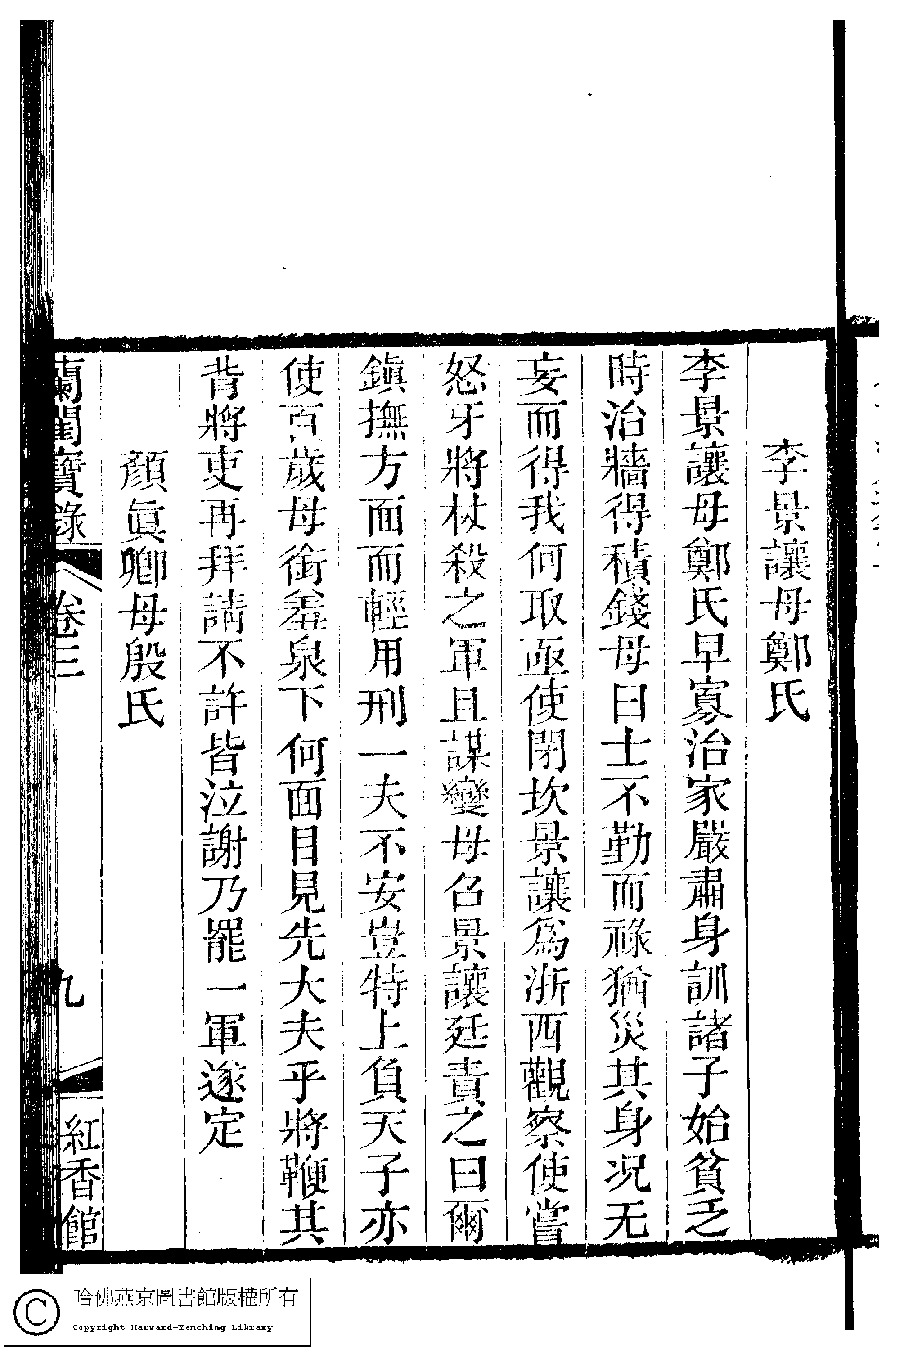 李景讓母鄭氏
李景讓母鄭氏早寡治家嚴肅身訓諸子始貧乏
時治牆得積錢母曰士不勤而祿猶災其身况无
妄而得我何取亟使閉坎景讓爲浙西觀察使嘗
怒牙將杖殺之軍且謀變母召景讓廷責之曰爾
鎭撫方面而輕用刑一夫不安豈特上負天子亦
使百歲母銜羞泉下何面目見先大夫乎將鞭其
背將吏再拜請不許皆泣謝乃罷一軍遂定
顏眞卿母殷氏
蘭閨寶錄 卷三 九 紅香館
哈佛燕京圖書館版權所有
Copyright Harvard-Yenching Library